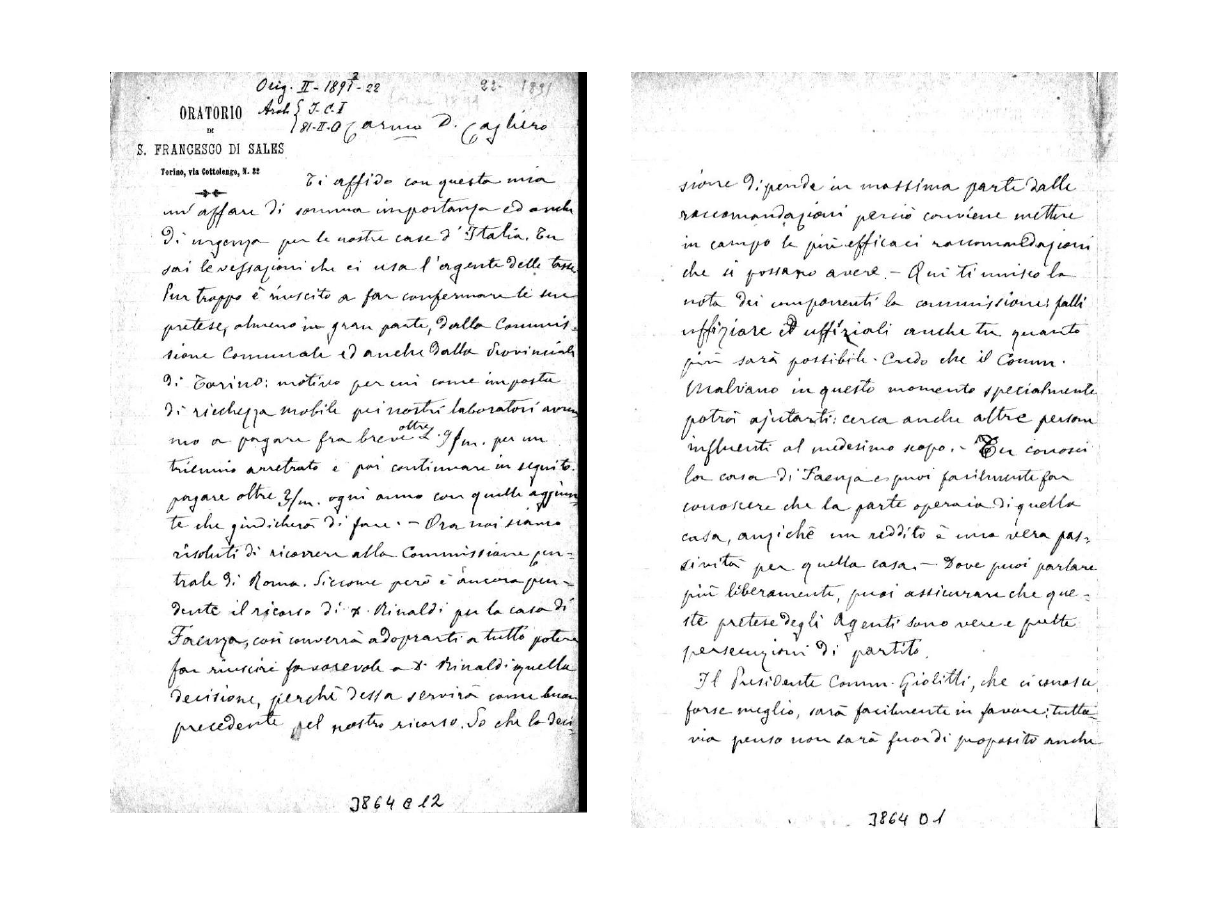 Orig. II - 1897 - 22
2
22. 1891
ORATORIO
DI
S. FRANCESCO DI SALES
Torino, via Cottolengo, N. 32
Arch { J. C. I
81-II-0
Carmo D. Cagliero
Ti affido con questa mia
un' affare di somma importanza ed anche
di urgenza per le nostre case d'Italia. Tu
sai le vessazioni che ci usa l'agente delle tasse.
Pur troppo è riuscito a far confermare le sue
pretese, almeno in gran parte, dalla Commis-
sione Comunale ed anche dalla Provinciale
di Torino: motivo per cui come imposta
di ricchezza mobile pei nostri laboratori avrem
mo a pagare fra breve oltre L. 9/m. per un
triennio arretrato e poi continuare in seguito
pagare oltre 3/m. ogni anno con quelle aggiun
te che giudicherà di fare. - Ora noi siamo
risoluti di ricorrere alla Commissione cen-
trale di Roma. Siccome però è ancora pen-
dente il ricorso di D. Rinaldi per la casa di
Faenza, così converrà adoprarti a tutto potere
far riuscire favorevole a D. Rinaldi quella
decisione, perchè dessa servirà come buon
precedente pel nostro ricorso. So che la deci-
3864 C 12
sione dipende in massima parte dalle
raccomandazioni perciò conviene mettere
in campo le più efficaci raccomandazioni
che si possano avere. - Qui ti unisco la
nota dei componenti la commissione: falli
uffiziare ed uffiziali anche tu quanto
più sarà possibile. Credo che il Comm.
Malvano in questo momento specialmente
potrà ajutarti: cerca anche altre persone
influenti al medesimo scopo. - Tu conosci
la casa di Faenza e puoi facilmente far
conoscere che la parte operaia di quella
casa, anzichè un reddito è una vera pas-
sività per quella casa. - Dove puoi parlare
più liberamente, puoi assicurare che que-
ste pretese degli Agenti sono vere e prette
persecuzioni di partito.
Il Presidente Comm. Giolitti, che ci conosce
forse meglio, sarà facilmente in favore; tutta-
via penso non sarà fuor di proposito anche
3864 D 1